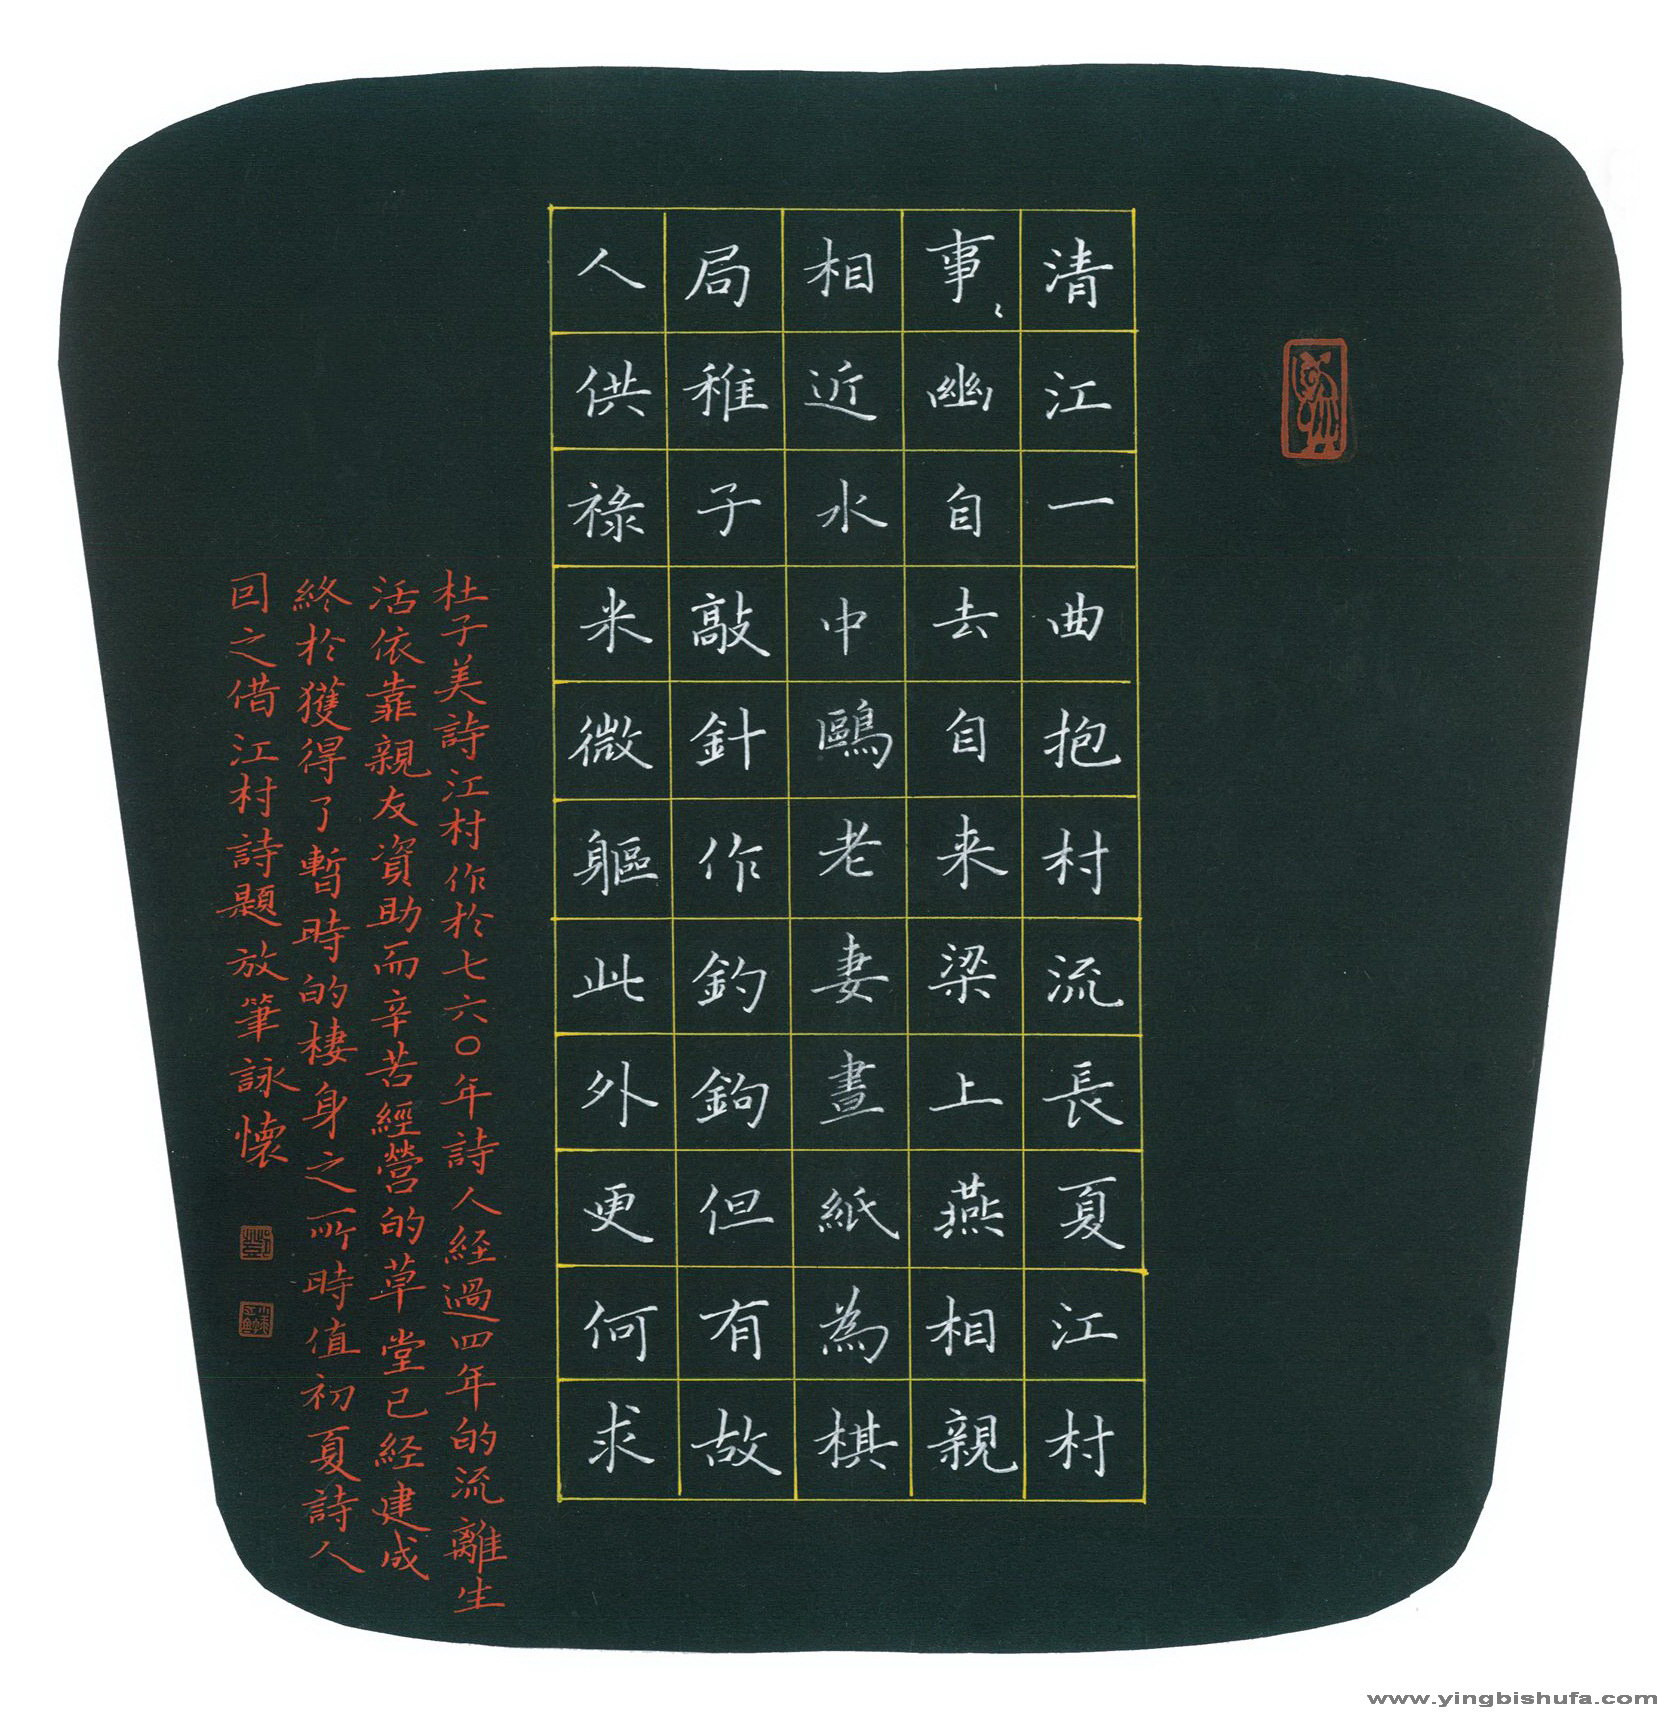 清江一曲抱村流長夏江村
事〻幽自去自来梁上燕相親
相近水中鷗老妻畫紙為棋
局稚子敲針作釣鉤但有故
人供禄米微軀此外更何求
杜子美詩江村作於七六〇年詩人経過四年的流離生
活依靠親友資助而辛苦經營的草堂已経建成
終於獲得了暫時的棲身之所時值初夏詩人
回之借江村詩題放筆詠懷
www.yingbishufa.com